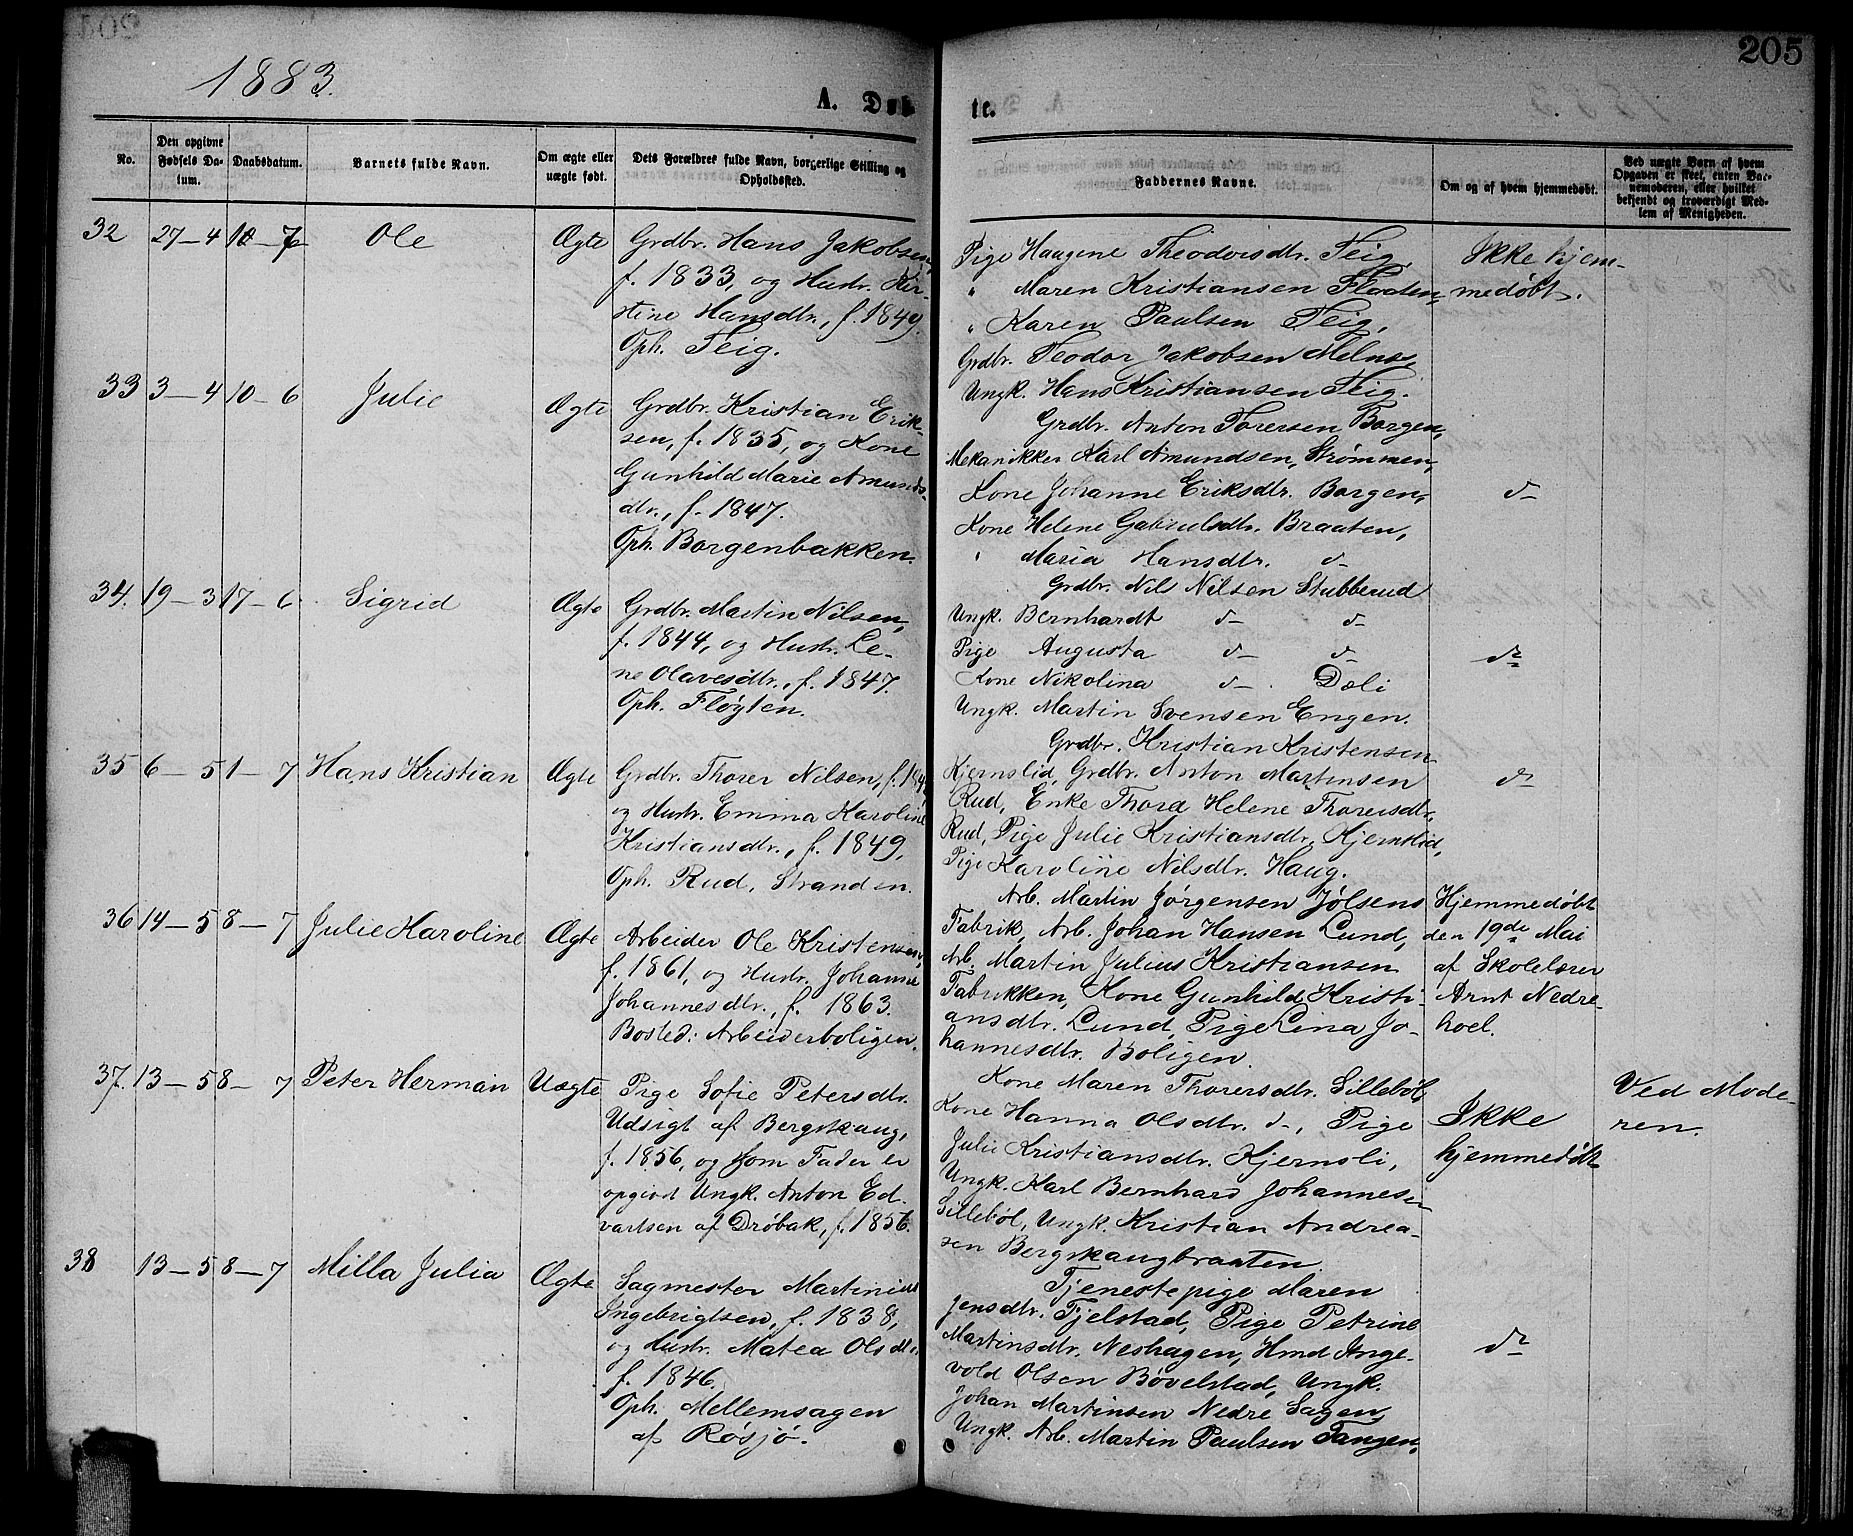 205
1883.
A. Døb
te.
No.
Den opgivne Fødsels Da-
tum.
Daabsdatum.
Barnets fulde Navn.
Om ægte eller
uægte født.
Dets Forældres fulde Navn, borgerlige Stilling og
Opholdssted.
Faddernes Navne.
Om og af hvem hjemmedøbt.
Ved uægte Barn af hvem
Opgaven er skeet, enten Bar-
nemoderen, eller hvilket
bekjendt og troværdigt Med-
lem af Menigheden.
32 27–4 10–6 Ole Ægte Grdbr. Hans Jakobsen,
f. 1833, og Hustr. Kir-
stine Hansdtr., f. 1849.
Oph. Teig.
Pige Haagene Theodorsdtr. Teig,
" Maren Kristiansen Flaaten,
" Karen Paulsen Teig,
Grdbr. Teodor Jakobsen Melnes,
Ungk. Hans Kristiansen Teig.
Ikke hjem-
medøbt.
33 3–4 10–6 Julie Ægte Grdbr. Kristian Erik-
sen, f. 1835, og Kone
Gunhild Marie Amunds-
dtr., f. 1847.
Oph. Borgenbakken.
Grdbr. Anton Torersen Borgen,
Mekanikker Karl Amundsen, Strømmen,
Kone Johanne Eriksdtr. Borgen,
Kone Helene Gabrielsdtr. Braaten,
" Maria Hansdtr. d–
d–
34. 19–3 17–6 Sigrid Ægte Grdbr. Martin Nilsen,
f. 1844, og Hustr. Le-
ne Olavesdtr., f. 1847.
Oph. Fløgten.
Grdbr. Nils Nilsen Stubberud
Ungk. Bernhardt d– d–
Pige Augusta d– d–
Kone Nikolina d– Dæli
Ungk. Martin Svensen Engen.
do
35 6–5 1–7 Hans Kristian Ægte Grdbr. Thorer Nilsen, f. 184
og Hustr. Emma Karoline
Kristiansdtr., f. 1849,
Oph. Rud, Stranden.
Grdbr. Kristian Kristensen
Kjernslid, Grdbr. Anton Martinsen
Rud, Enke Thora Helene Thorersdtr.
Rud, Pige Julie Kristiansdtr. Kjernslid,
Pige Karoline Nilsdtr. Haug.
do
36 14–5 8–7 Julie Karoline Ægte Arbeider Ole Kristensen,
f. 1861, og Hustr. Johanne
Johannesdtr., f. 1863.
Bosted: Arbeiderboligen.
Arb. Martin Jørgensen Jølsens
Fabrik, Arb. Johan Hansen Lund,
Arb. Martin Julius Kristiansen
Fabrikken, Kone Gunhild Kristi-
ansdtr. Lund, Pige Lina Jo-
hannesdtr. Boligen.
Hjemmedøbt
den 19de Mai
af Skolelærer
Arnt Nedre-
hoel.
37. 13–5 8–7 Peter Herman Uægte Pige Sofie Petersdtr.
Udsigt af Bergskaug,
f. 1856, og som Fader er
opgivet Ungk. Anton Ed-
vartsen af Drøbak, f. 1856.
Kone Maren Thorersdtr. Sillebøl,
Kone Hanna Olsdtr. d–, Pige
Julie Kristiansdtr. Kjernsli,
Ungk. Karl Bernhard Johannesen
Sillebøl, Ungk. Kristian Andrea-
sen Bergskaugbraaten.
Ikke
hjemmedøbt
Ved Mode-
ren.
38 13–5 8–7 Milla Julia Ægte Sagmester Martinius
Ingebrigtsen, f. 1838,
og Hustr. Matea Olsdtr.
f. 1846.
Oph. Mellemsagen
af Røsjø.
Tjenestepige Maren
Jensdtr. Fjelstad, Pige Petrine
Martinsdtr. Neshagen, Hmd Inge-
vold Olsen Bøvelstad, Ungk.
Johan Martinsen Nedre Sagen,
Ungk. Arb. Martin Paulsen Tangen,
do